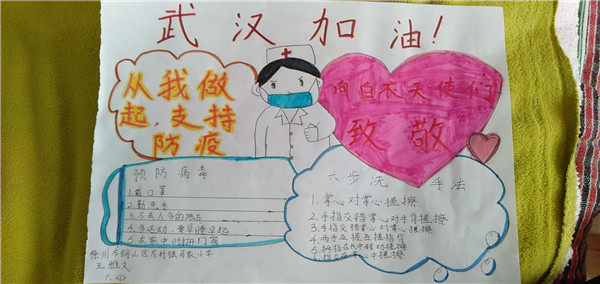 武汉加油!
从我做
起,支持
防疫
向白衣天使们
致敬
预防病毒
1.戴口罩
2.勤洗手
3.不去人多的地方
4.多运动,要早睡早起
5.在家中时时开门窗
六步洗手法
1.掌心对掌心搓擦
2.手指交错掌心对手背搓擦
3.手指交错掌心对掌心搓擦
4.两手互握互搓指背
5.拇指在掌中转动搓擦
6.指尖在掌心中搓擦
徐州市铜山区
小学
王雅文